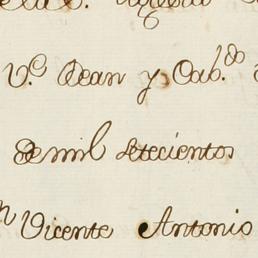 V.e Dean y Cab.do
de mil setecientos
n Vicente Antonio